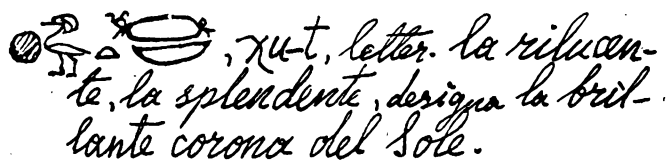 , χu-t, letter. la rilucen-
te, la splendente, designa la bril-
lante corona del Sole.